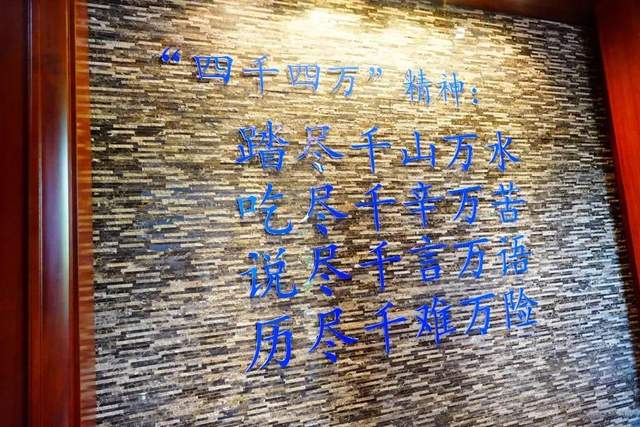 “四千四万”精神：
踏尽千山万水
吃尽千辛万苦
说尽千言万语
历尽千难万险